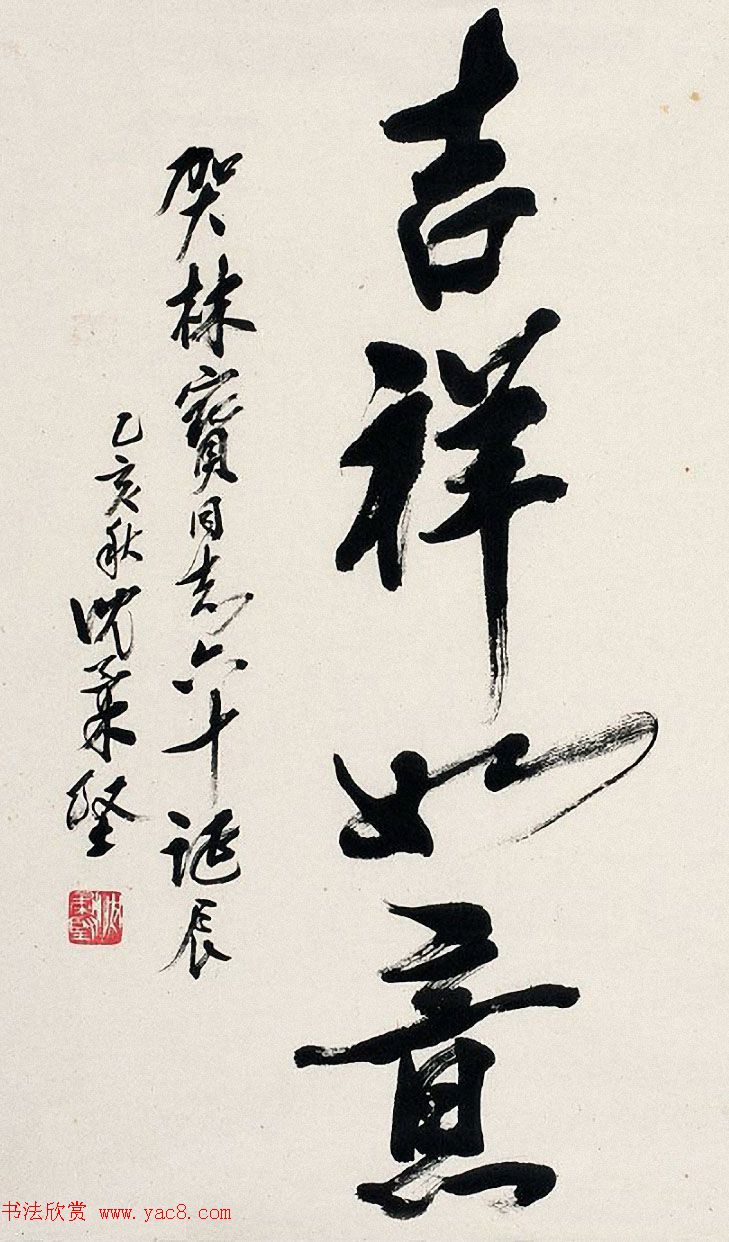 吉祥如意
贺林宝同志六十诞辰
乙亥秋沈柔坚
书法欣赏 www.yac8.com